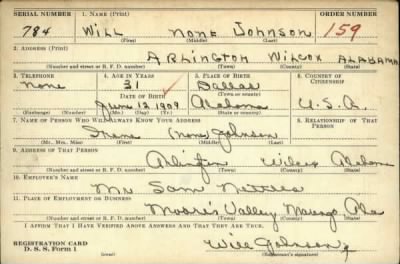 SERIAL NUMBER 1. NAME (Print) ORDER NUMBER
784 WILL NONE JOHNSON 159
(First) (Middle) (Last)
2. ADDRESS (Print)
ARLINGTON WILCOX ALABAMA
(Number and street or R. F. D. number) (Town) (County) (State)
3. TELEPHONE 4. AGE IN YEARS 5. PLACE OF BIRTH 6. COUNTRY OF CITIZENSHIP
none 31 Dallas
DATE OF BIRTH (Town or county)
June 12 1909 Alabama U.S.A.
(Exchange) (Number) (Mo.) (Day) (Yr.) (State or country)
7. NAME OF PERSON WHO WILL ALWAYS KNOW YOUR ADDRESS 8. RELATIONSHIP OF THAT PERSON
Irene (none) Johnson
(Mr., Mrs., Miss) (First) (Middle) (Last)
9. ADDRESS OF THAT PERSON
Arlington Wilcox Alabama
(Number and street or R. F. D. number) (Town) (County) (State)
10. EMPLOYER'S NAME
Mr Sam Nettles
11. PLACE OF EMPLOYMENT OR BUSINESS
Moore's Valley Marengo Ala
(Number and street or R. F. D. number) (Town) (County) (State)
I AFFIRM THAT I HAVE VERIFIED ABOVE ANSWERS AND THAT THEY ARE TRUE.
REGISTRATION CARD
D. S. S. Form 1 Will Johnson
(Registrant's signature)